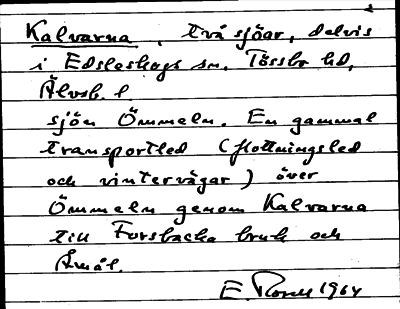 Kalvarna, två sjöar, delvis
i Edsleskogs sn, Tössbo hd,
Älvsb. l
sjön Ömmeln. En gammal
transportled (flottningsled
och vintervägar) över
Ömmeln genom Kalvarna
till Forsbacka bruk och
Åmål.
E. 1964